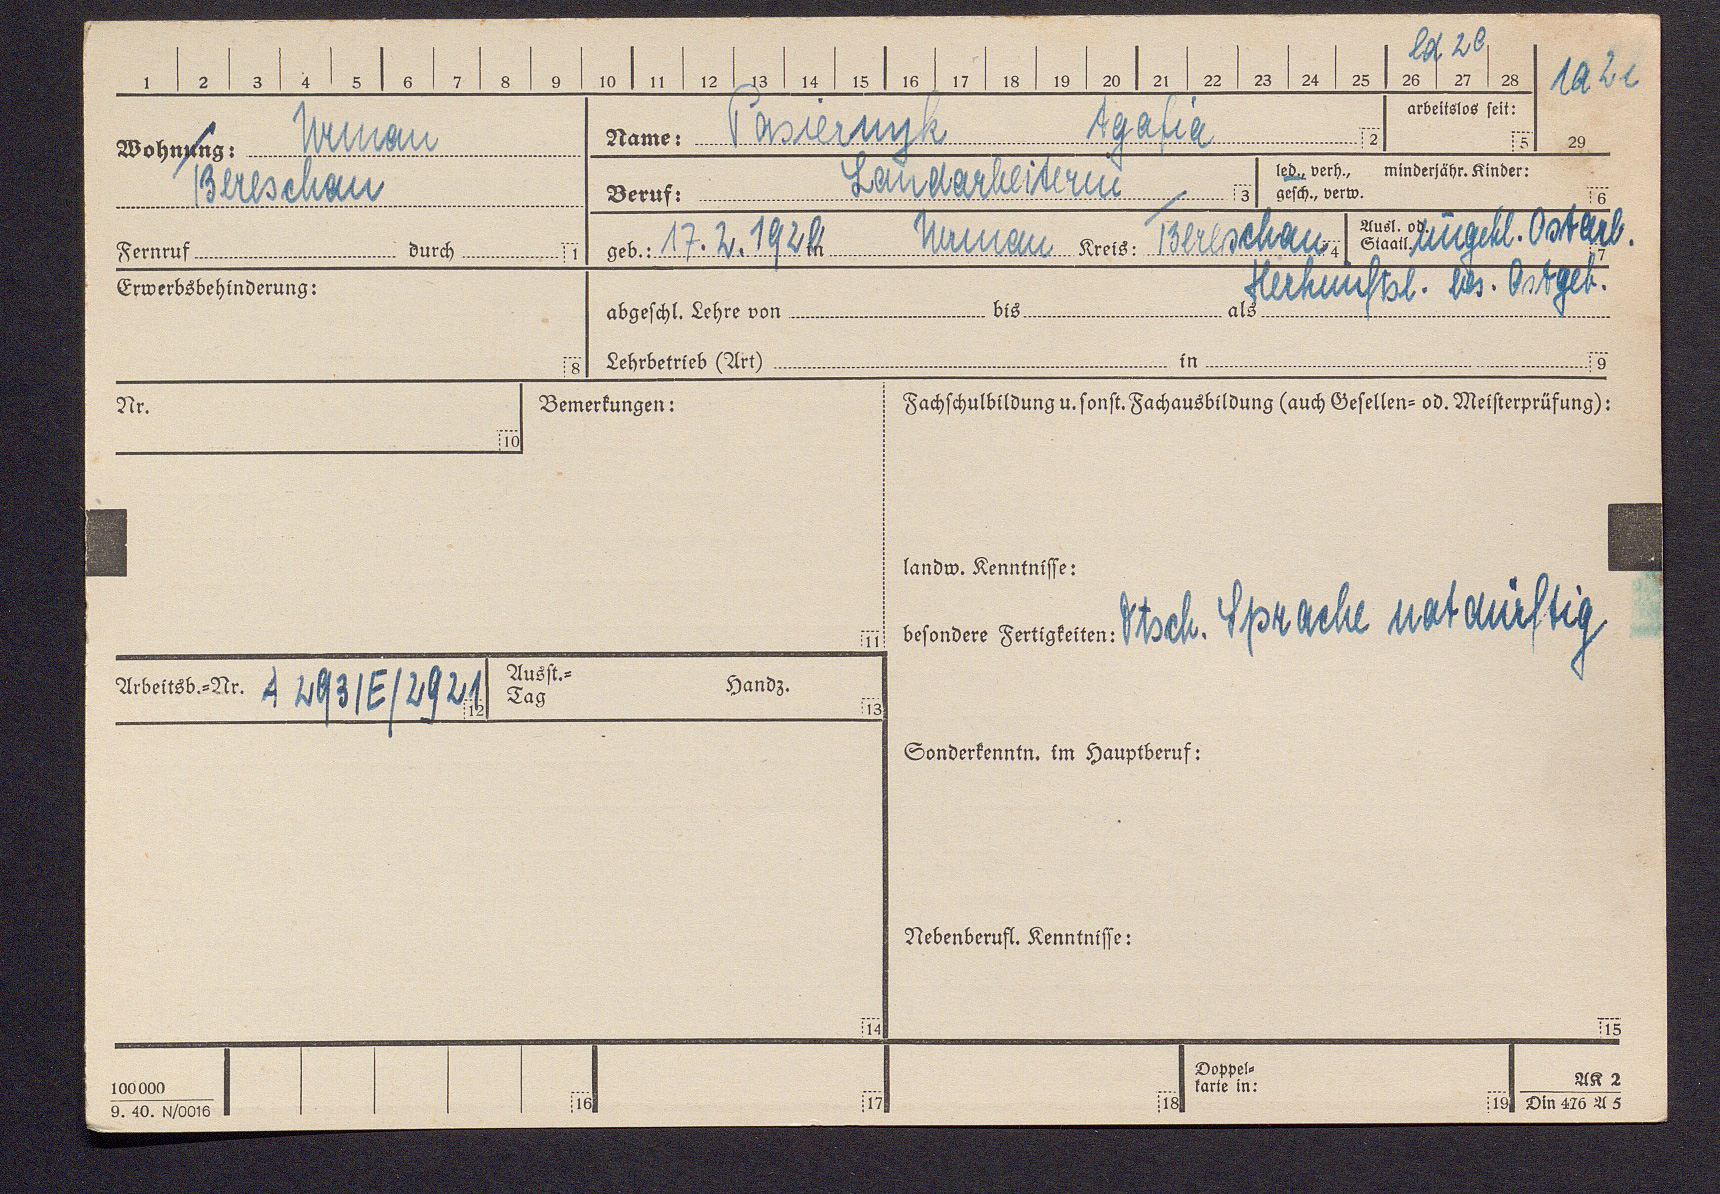 ld 2e
1 2 3 4 5 6 7 8 9 10 11 12 13 14 15 16 17 18 19 20 21 22 23 24 25 26 27 28
1a 2e
29
Wohnung: Urman
Bereschan
Fernruf durch 1
Name: Pasiernyk Agafia 2
arbeitslos seit: 5
Beruf: Landarbeiterin 3
led., verh., gesch., verw. minderjähr. Kinder: 6
geb.: 17.2.192 in Urman Kreis: Bereschan 4
Ausl. od. Staatl. ungekl. Ostarb. 7
Herkunftsl. bes. Ostgeb.
Erwerbsbehinderung: 8
abgeschl. Lehre von bis als
Lehrbetrieb (Art) in 9
Nr. 10
Bemerkungen: 11
Fachschulbildung u. sonst. Fachausbildung (auch Gesellen= od. Meisterprüfung):
landw. Kenntnisse:
besondere Fertigkeiten: Dtsch. Sprache notdürftig
Arbeitsb.=Nr. A 293/E/2921 12
Ausst.= Tag Handz. 13
Sonderkenntn. im Hauptberuf:
Nebenberufl. Kenntnisse:
14
15
100000
9. 40. N/0016
16 17 18
Doppel=
karte in: 19
AK 2
Din 476 A 5